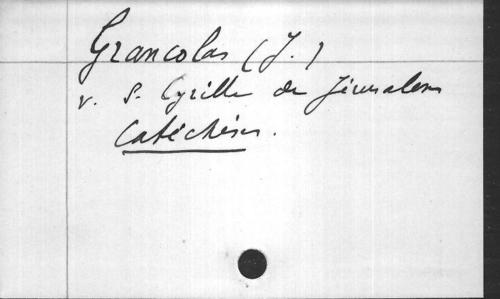 Grancolas (J.)
v. S. Cyrille de Jérusalem
Catéchèses.